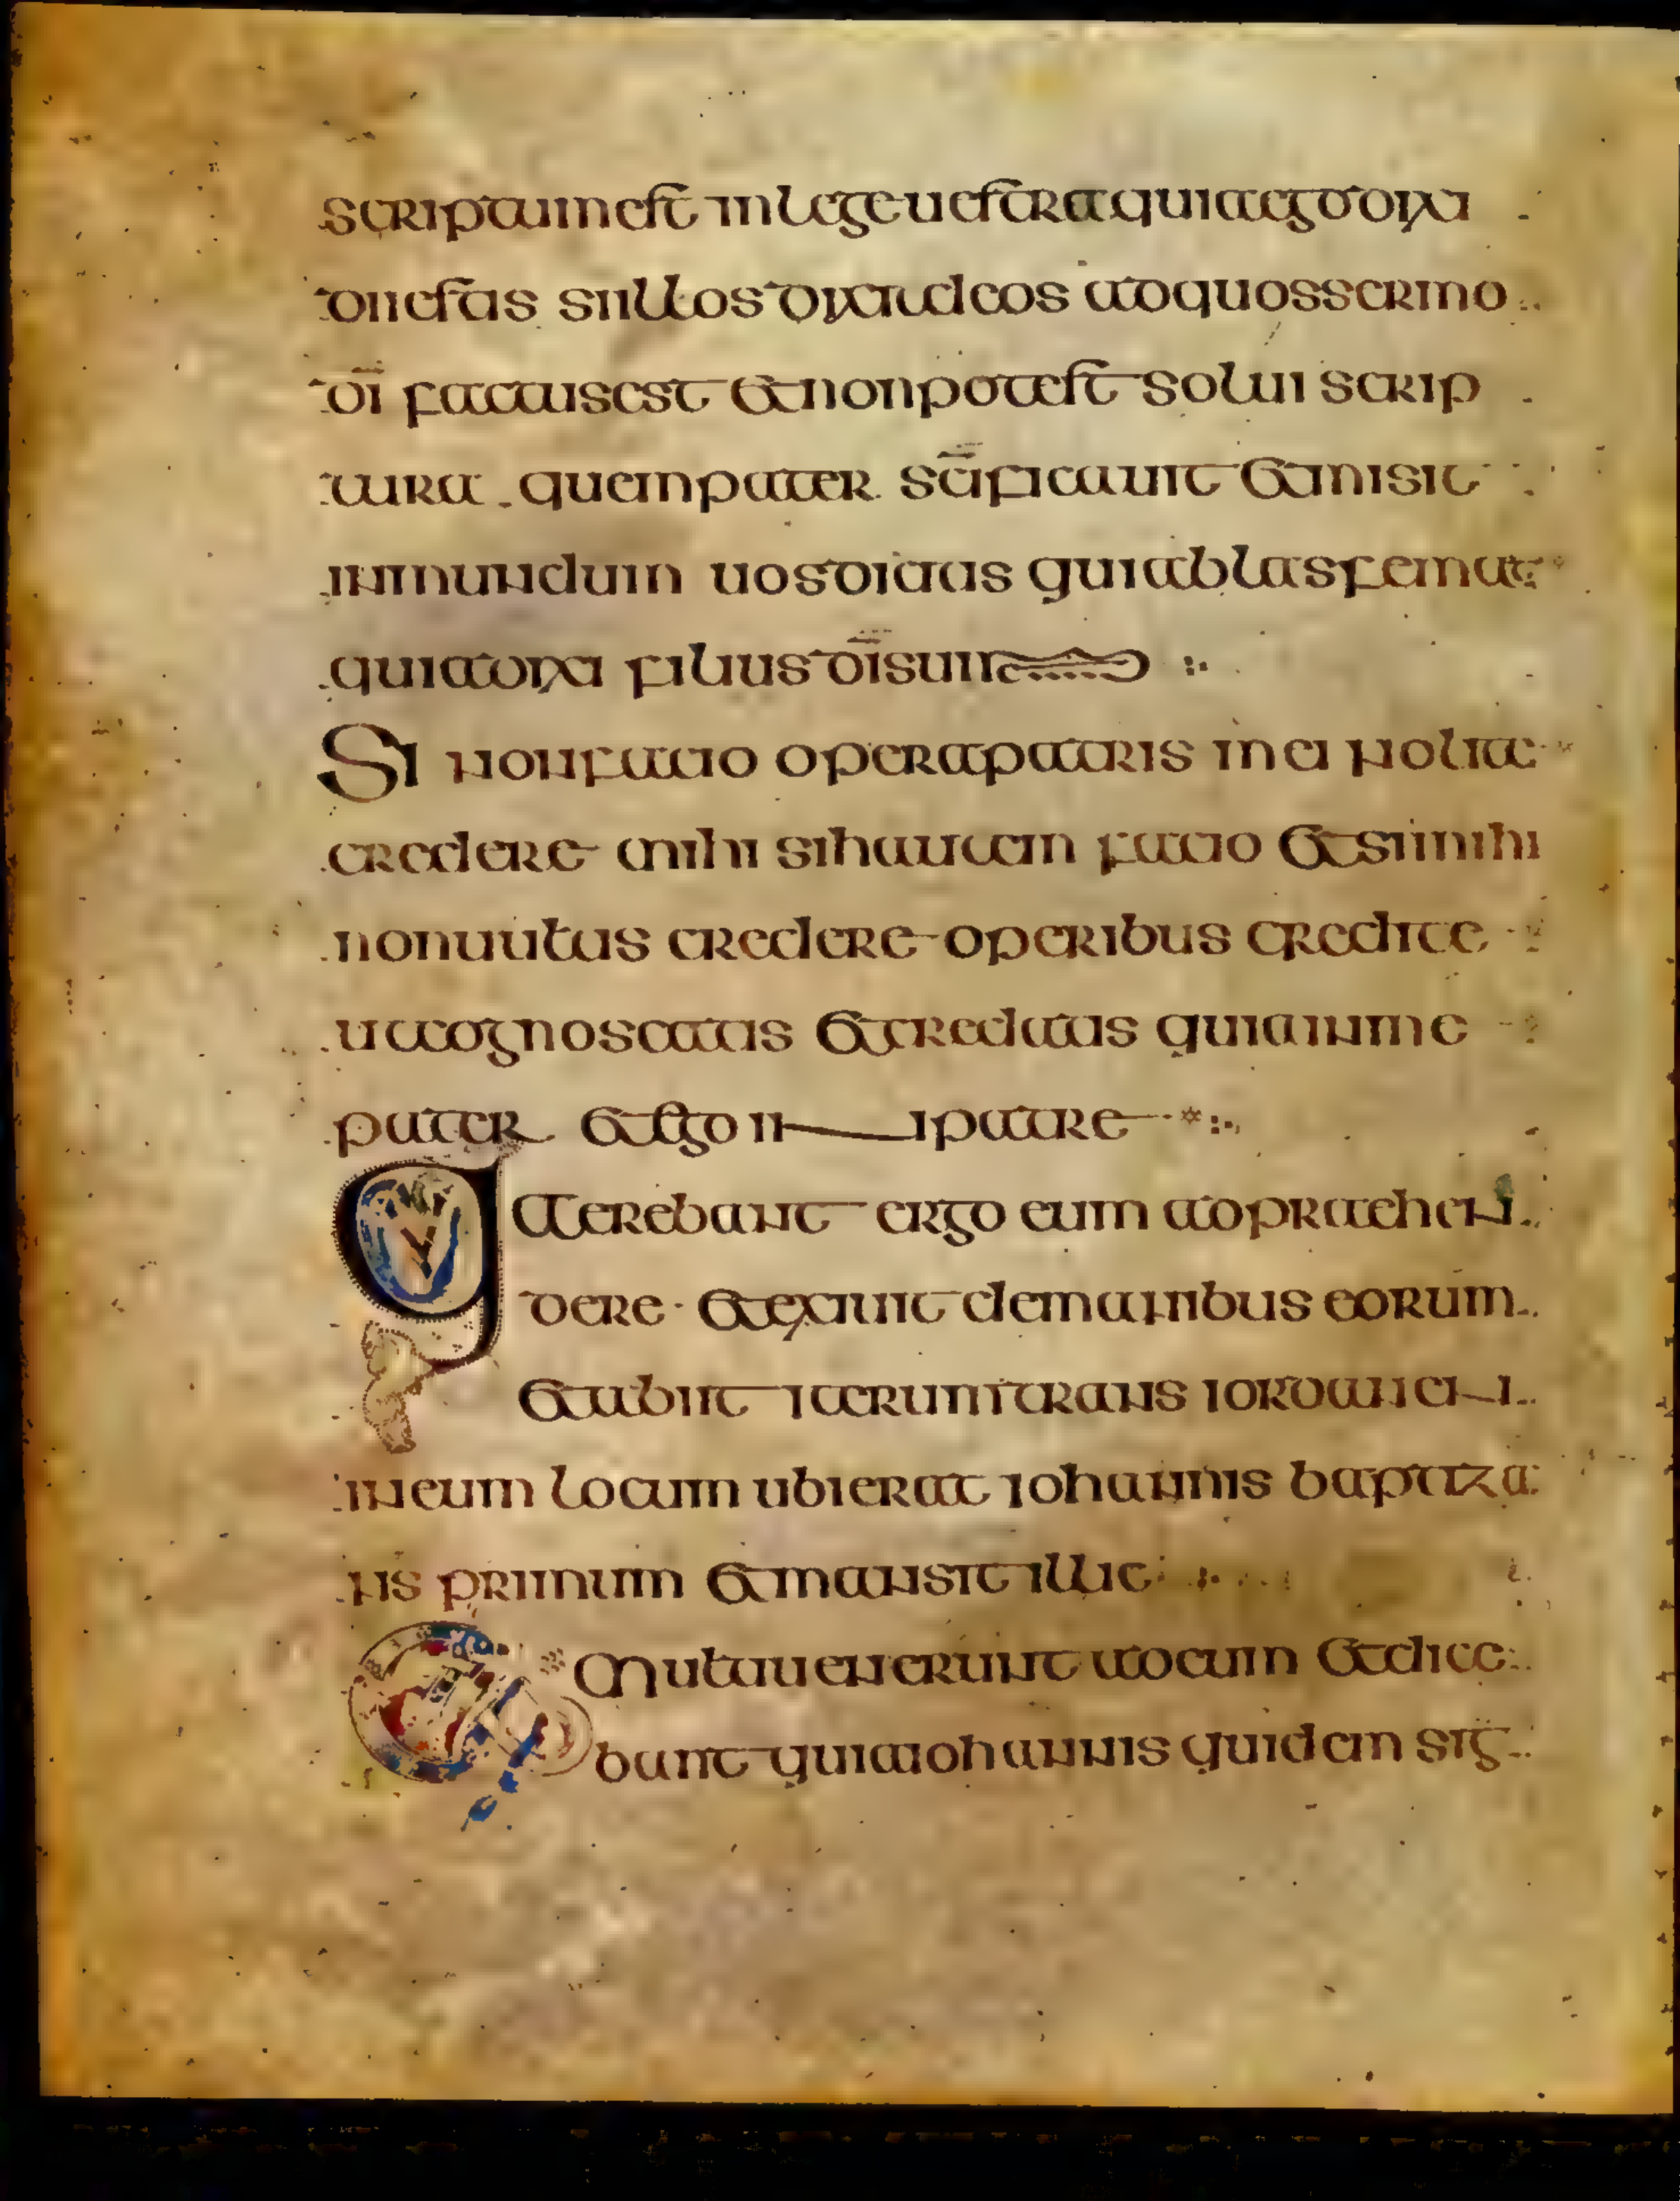 scriptum est in lege uestra quia ego dixi
dii estis si illos dixit deos ad quos sermo
dī factus est et non potest solui scrip
tura quem pater scīficauit et misit
in mundum uos dicitis quia blasfemat
quia dixi filius dī sum
Si non facio opera patris mei nolite
credere mihi si hautem facio et si mihi
non uultis credere operibus credite
ut cognoscatis et credatis quia in me
pater et ego in patre
Quaerebant ergo eum adpraehen
dere et exiuit de manibus eorum
et abiit iterum trans iordanen
in eum locum ubi erat iohannis baptiza
ns primum et mansit illic
Et multi uenerunt ad eum et dice
bant quia iohannis quidem sig